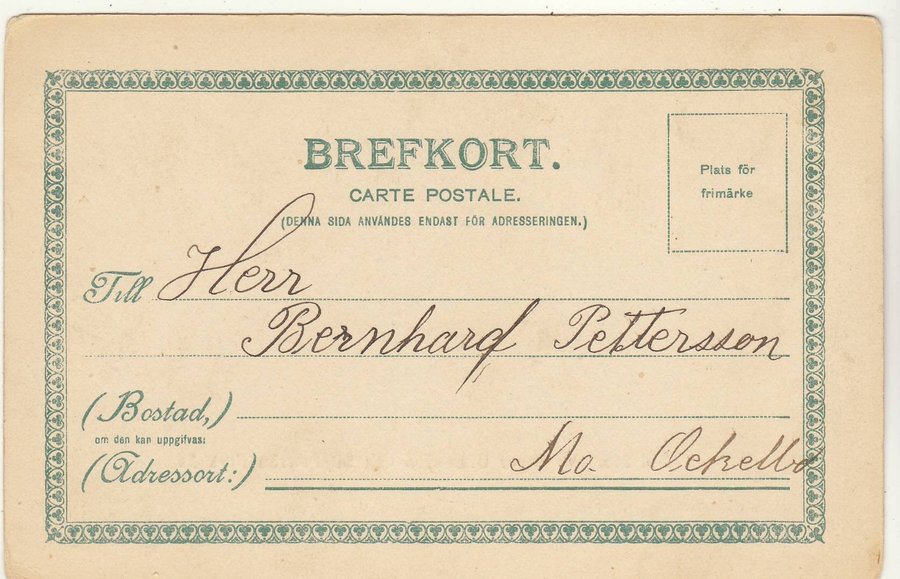 BREFKORT.
CARTE POSTALE.
(DENNA SIDA ANVÄNDES ENDAST FÖR ADRESSERINGEN.)
Plats för
frimärke
Till Herr
Bernhard Pettersson
(Bostad,)
om den kan uppgifvas:
(Adressort:) Mo. Ockelbo